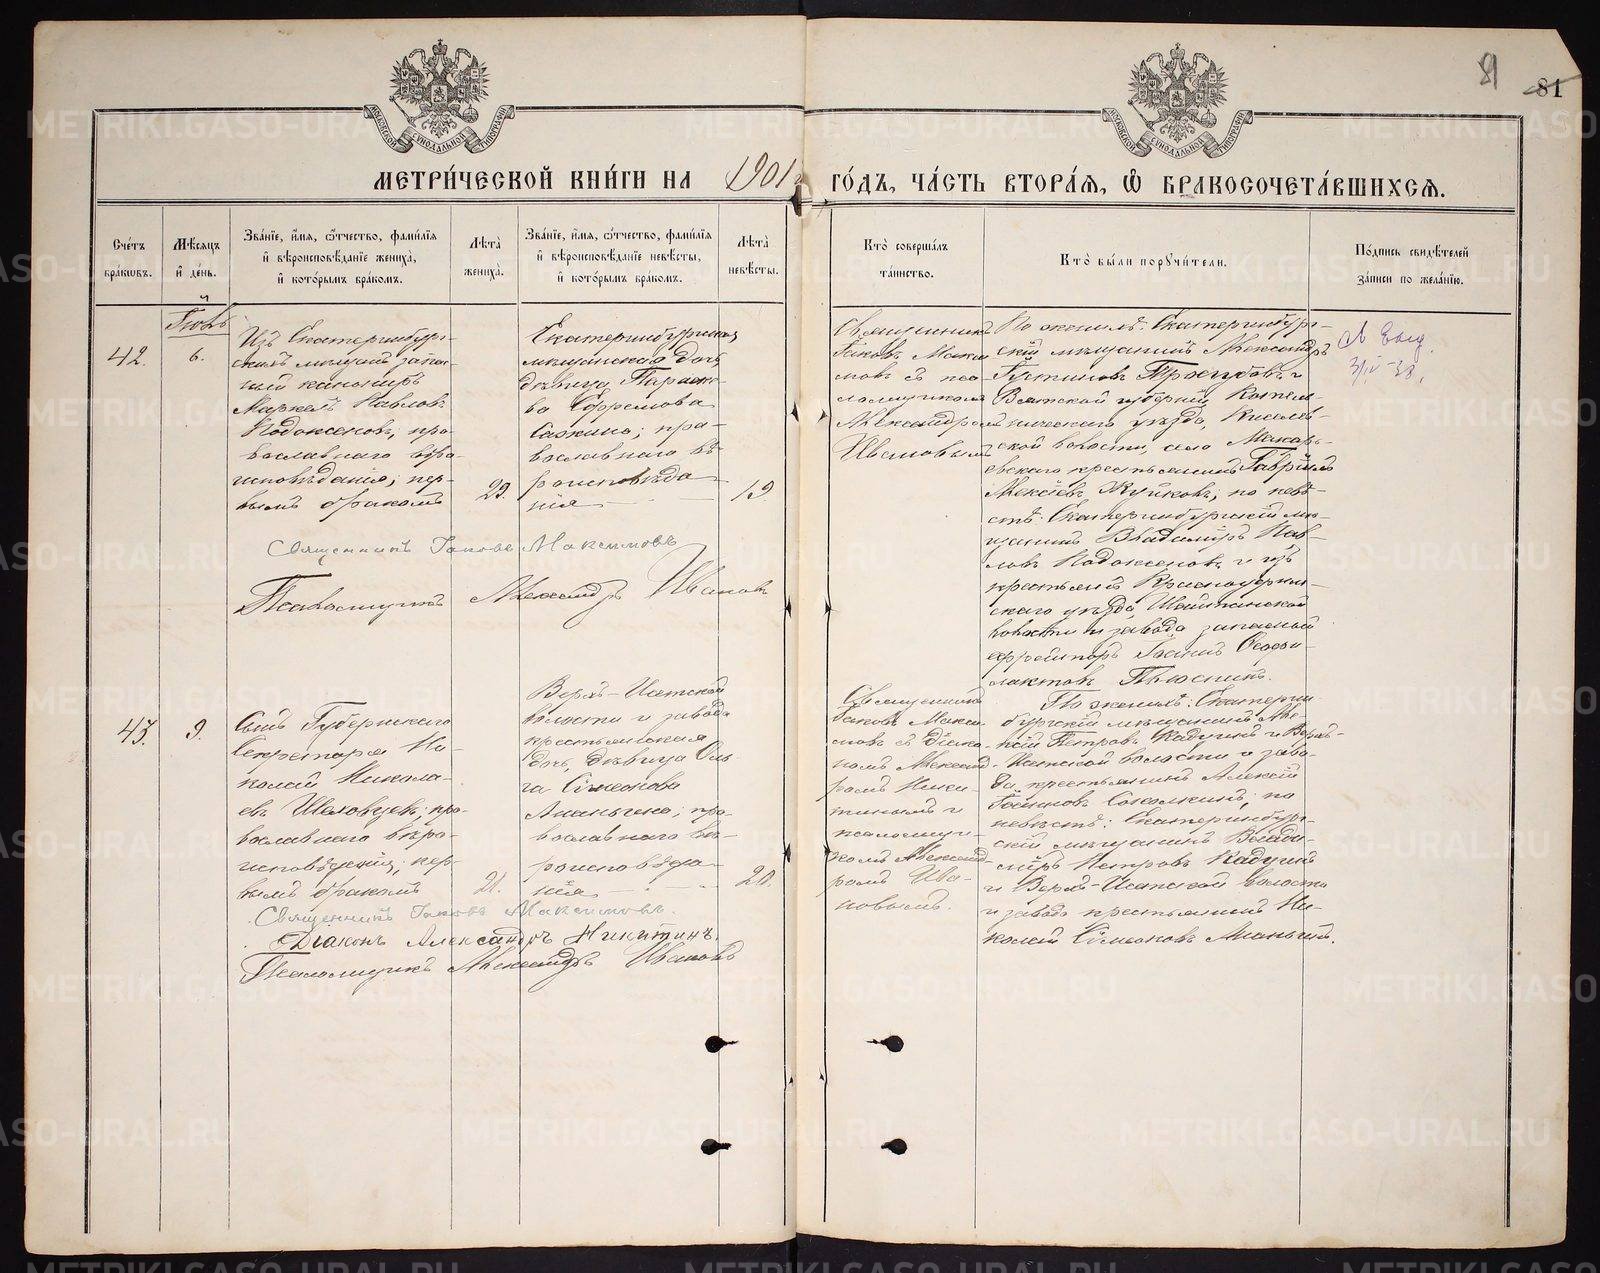 81
81
МОСКОВСКОЙ СѴНОДАЛЬНОЙ ТИПОГРАФІИ
МОСКОВСКОЙ СѴНОДАЛЬНОЙ ТИПОГРАФІИ
МЕТРИ́ЧЕСКОЙ КНИ́ГИ НА 1901 ГО́ДЪ, ЧА́СТЬ ВТОРА́Я, Ѡ҆ БРАКОСОЧЕТА́ВШИХСЯ.
Сче́тъ
бра́кѡвъ.
Мѣ́сяцъ
и҆ де́нь.
Зва́нїе, и҆́мя, ѻ҆́тчество, фами́лїя
и҆ вѣроисповѣ́данїе жениха̀,
и҆ кото́рымъ бра́комъ.
Лѣ́та
жениха̀.
Зва́нїе, и҆́мя, ѻ҆́тчество, фами́лїя
и҆ вѣроисповѣ́данїе невѣ́сты,
и҆ кото́рымъ бра́комъ.
Лѣ́та
невѣ́сты.
Кто̀ соверша́лъ
та́инство.
Кто̀ бы́ли порꙋчи́тели.
По́дпись свидѣ́телей
за́писи по жела́нїю.
42.
6.
Изъ Екатеринбург-
скихъ мѣщанъ запас-
ный канониръ
Маркелъ Павловъ
Подоксеновъ, пра-
вославнаго вѣро-
исповѣданія; пер-
вымъ бракомъ
29.
Екатеринбургская
мѣщанская дочь,
дѣвица Параске-
ва Ефремова
пра-
вославнаго вѣ-
роисповѣда-
нія
19.
Священникъ
Іаковъ Макси-
мовъ съ пса-
ломщикомъ
Александромъ
Ивановымъ
По женихѣ: Екатеринбург-
скій мѣщанинъ Александръ
Вятской губерніи, Котель-
ническаго уѣзда,
ской волости, села Макарь-
евскаго крестьянинъ Гавріилъ
Алексіевъ Жуйковъ; по невѣ-
стѣ: Екатеринбургскій мѣ-
щанинъ Владиміръ Пав-
ловъ Подоксеновъ и изъ
крестьянъ Красноуфим-
скаго уѣзда, Шайтанской
волости и завода, запасный
ефрейторъ Іоаннъ Ѳеофи-
лактовъ
3/IV-38.
Священникъ Іаковъ Максимовъ
Псаломщикъ Александръ Ивановъ
43.
9.
Сынъ Губернскаго
Секретаря Ни-
колай Никола-
евъ пра-
вославнаго вѣро-
исповѣданія; пер-
вымъ бракомъ
21.
Верхъ-Исетской
волости и завода
крестьянская
дочь, дѣвица Оль-
га Симеонова
Ананьина; пра-
вославнаго вѣ-
роисповѣда-
нія
20.
Священникъ
Іаковъ Макси-
мовъ съ діако-
номъ Александ-
ромъ Ники-
тинымъ и
псаломщи-
комъ Александ-
ромъ Ива-
новымъ.
По женихѣ: Екатерин-
бургскій мѣщанинъ
Петровъ Кадушинъ и Верхъ-
Исетской волости и заво-
да крестьянинъ Алексій
Іоанновъ по
невѣстѣ: Екатеринбург-
скій мѣщанинъ Влади-
міръ Петровъ Кадушинъ
и Верхъ-Исетской волости
и завода крестьянинъ Ни-
колай Симеоновъ Ананьинъ.
Священникъ Іаковъ Максимовъ.
Діаконъ Александръ Никитинъ.
Псаломщикъ Александръ Ивановъ